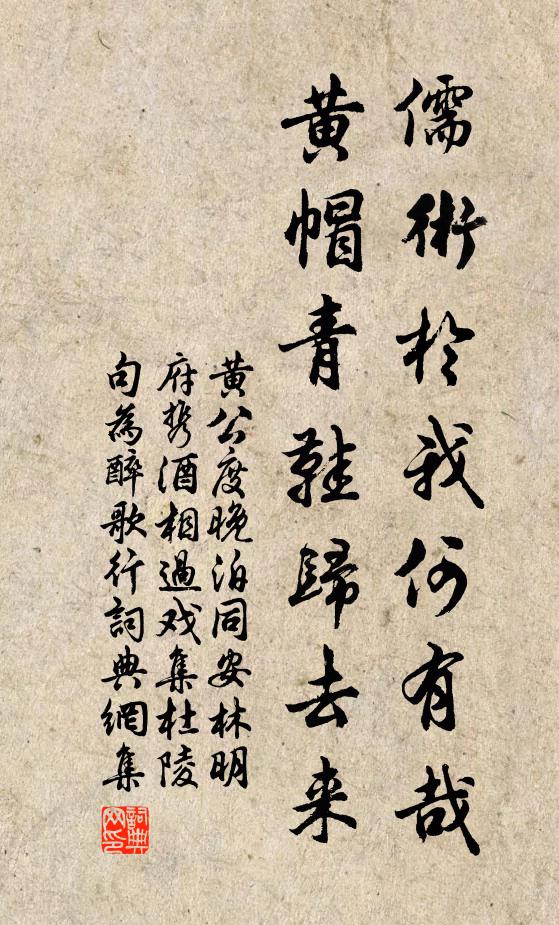 儒術於我何有哉
黄帽青鞋歸去来
黄公度晚泊同安林明
府携酒相過戏集杜陵
句為醉歌行詞典網集
詞典
网印